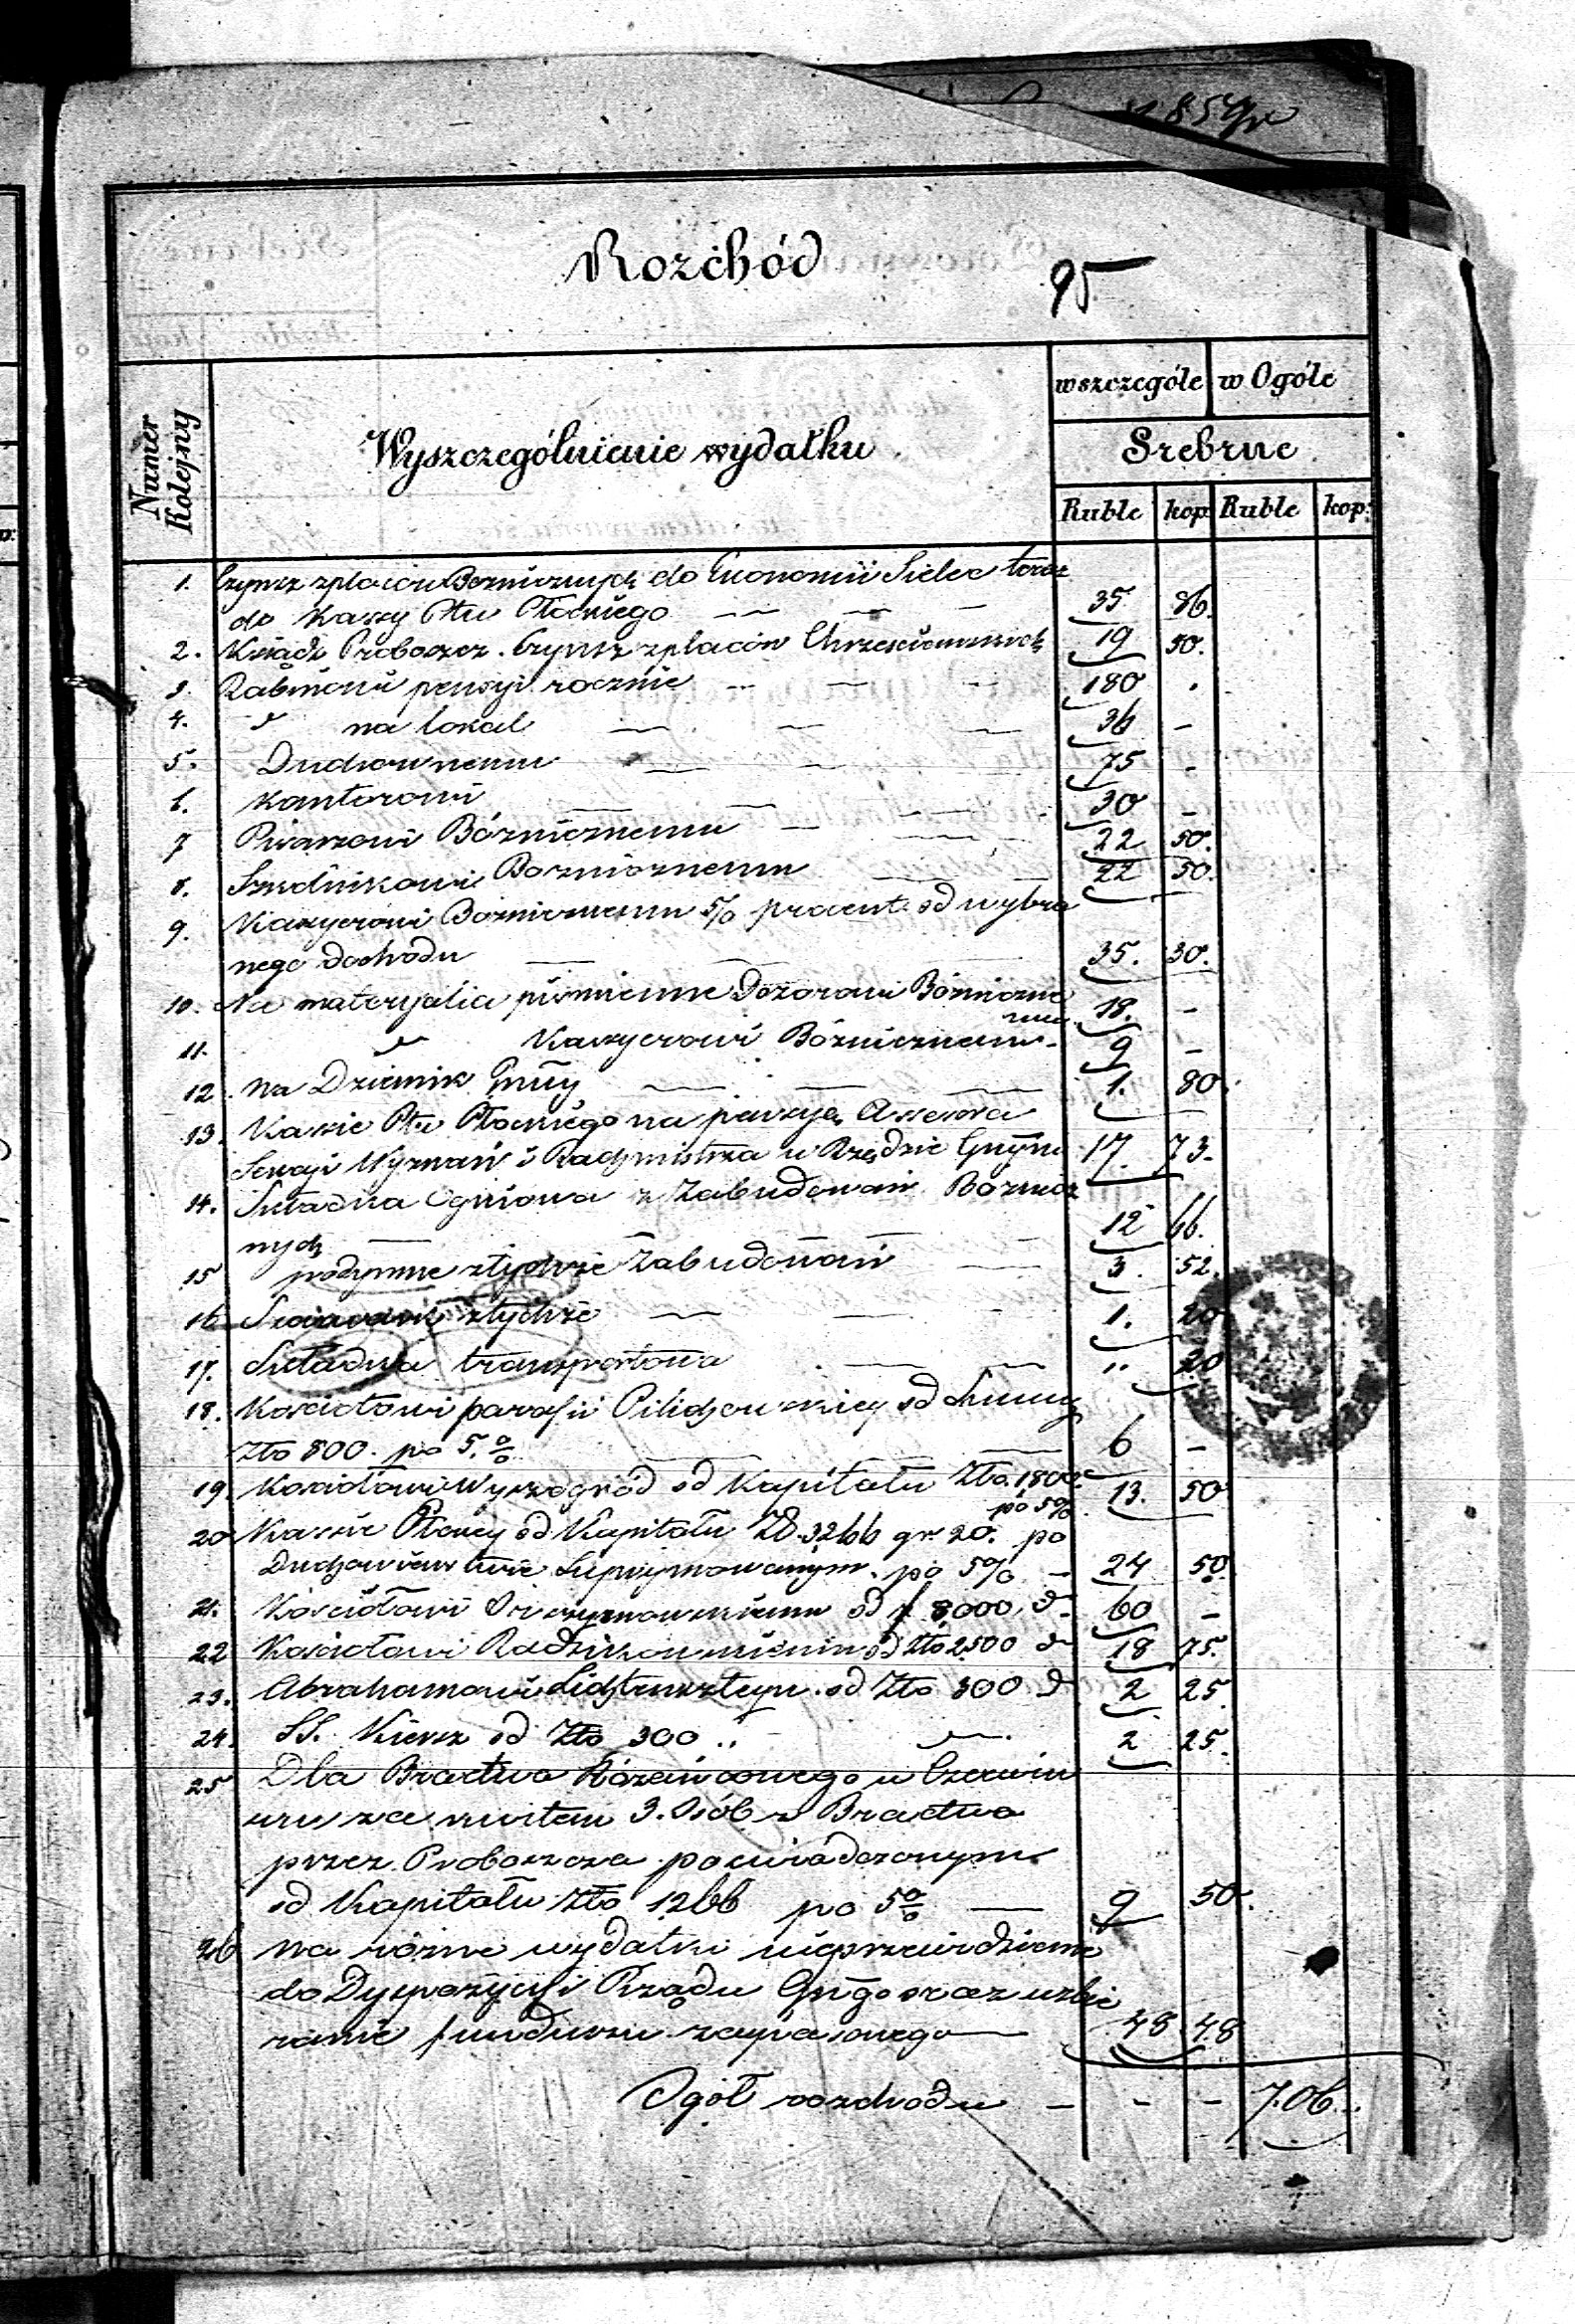 Rozchód
95
Numer Kolejny
Wyszczególnienie wydatku
wszczególe w Ogóle
Srebrne
Ruble kop: Ruble kop:
1. Czynsz z placów Bożnicznych do Ekonomii Sielec teraz
do Kassy Ptu Płockiego 35 86.
2. Ksiądz Proboszcz. Czynsz z placów Chrześciańskich 19 50.
3. Rabinowi pensyi rocznie 180 .
4. " na lokal 36 -
5. Duchownemu 75 -
6. Kantorowi 30 -
7 Pisarzowi Bóżnicznemu 22 50.
8. Szkolnikowi Bożnicznemu 22 50.
9. Kassyerowi Bożnicznemu 5/0 procent od wybra
nego dochodu 35. 30.
10. Na materyalia piśmienne Dozorowi Bóżniczne
mu 18. -
11. " Kassyerowi Bóżnicznemu 9 -
12. Na Dziennik Gūy 1. 80.
13. Kassie Ptu Płockiego na pensyę Assesora
Sekcyi Wyznań i Rachmistrza w Rządzie Gūym 17. 73.
14. Składka Ogniowa z Zabudowań Bożnicz
nych 12 66.
15 podymne z tychże Zabudowań 3. 52.
16 Szarwark z tychże 1. 20
17. Składka transportowa ,, 20
18. Kosciołowi parafii Pilichowskiey od Summy
Złp 800. po 5.% 6 -
19. Kosciołowi Wyszogród od Kapitału Złp. 1,800.
po 5% 13. 50
20 Kassie Płckiey od Kapitału Zł. 3266 gr. 20. po
Duchowieństwie Supprymowanym. po 5% - 24 50.
21. Kościołowi Orszymowskiemu od f 8,000, d- 60 -
22 Kosciołowi Radzikowskiemu od Złp 2500 d- 18 75.
23. Abrahamowi Lichtenszteyn. od Złp 300 d- 2 25.
24. SS. Kiersz od Złp 300 ,, 2 25.
25 Dla Bractwa Różańcowego w Czerwiń
sku za kwitem 3. Osób z Bractwa
przez Proboszcza poświadczonym
od Kapitału Złp 1266 po 5% 9 50.
26 na różne wydatki nieprzewidziane
do Dyspozycyi Rządu Gūgo oraz uzbie
ranie funduszu zapasowego 48 48
Ogół rozchodu - - - 706.